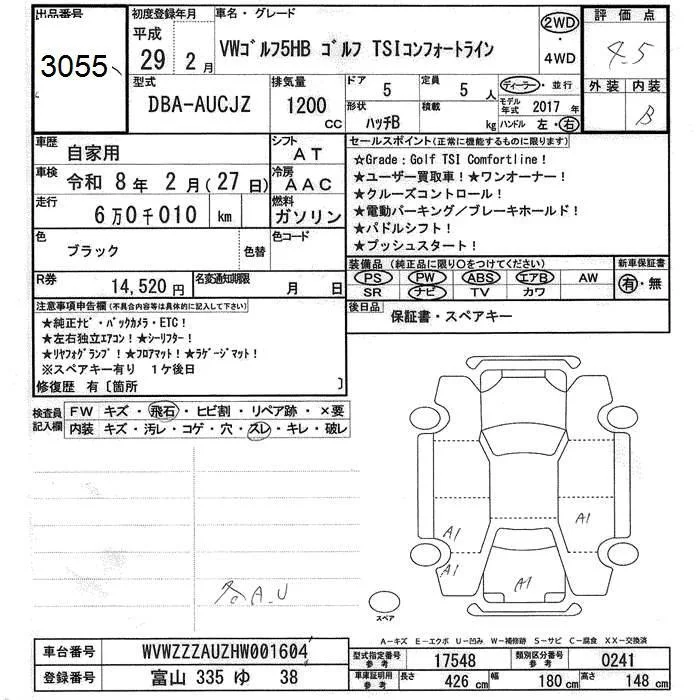 出品番号
3055
初度登録年月
平成
29 2月
車名・グレード
VWゴルフ5HB ゴルフ TSIコンフォートライン
2WD
・
4WD
評価点
4.5
外装 内装
B
型式
DBA-AUCJZ
排気量
1200
CC
ドア
5
定員
5 人
形状
ハッチB
積載
kg
ディーラー・並行
モデル年式 2017 年
ハンドル 左・右
車歴
自家用
シフト
AT
車検
令和 8年 2月(27日)
冷房
AAC
走行
6万0千010 km
燃料
ガソリン
色
ブラック
色替
色コード
R券
14,520円
名変通知期限
月 日
セールスポイント(正常に機能するものに限ります)
☆Grade:Golf TSI Comfortline!
★ユーザー買取車!★ワンオーナー!
★クルーズコントロール!
★電動パーキング/ブレーキホールド!
★パドルシフト!
★プッシュスタート!
装備品(純正品に限り○をつけてください)
PS PW ABS エアB AW
SR ナビ TV カワ
新車保証書
有・無
後日品
保証書・スペアキー
注意事項申告欄(不具合内容等は具体的に記入して下さい)
★純正ナビ・バックカメラ・ETC!
★左右独立エアコン!★シーリフター!
★リヤフォグランプ!★フロアマット!★ラゲージマット!
※スペアキー有り 1ケ後日
修復歴 有〔箇所 〕
検査員記入欄
FW キズ・飛石・ヒビ割・リペア跡・×要
内装 キズ・汚レ・コゲ・穴・スレ・キレ・破レ
各A.U
A1
A1
A1
A1
スペア
A-キズ E-エクボ U-凹み W-補修跡 S-サビ C-腐食 XX-交換済
車台番号
WVWZZZAUZHW001604
登録番号
富山 335 ゆ 38
型式指定番号
参考
17548
類別区分番号
参考
0241
車庫証明用
参考
長さ 426 cm
幅 180 cm
高さ 148 cm